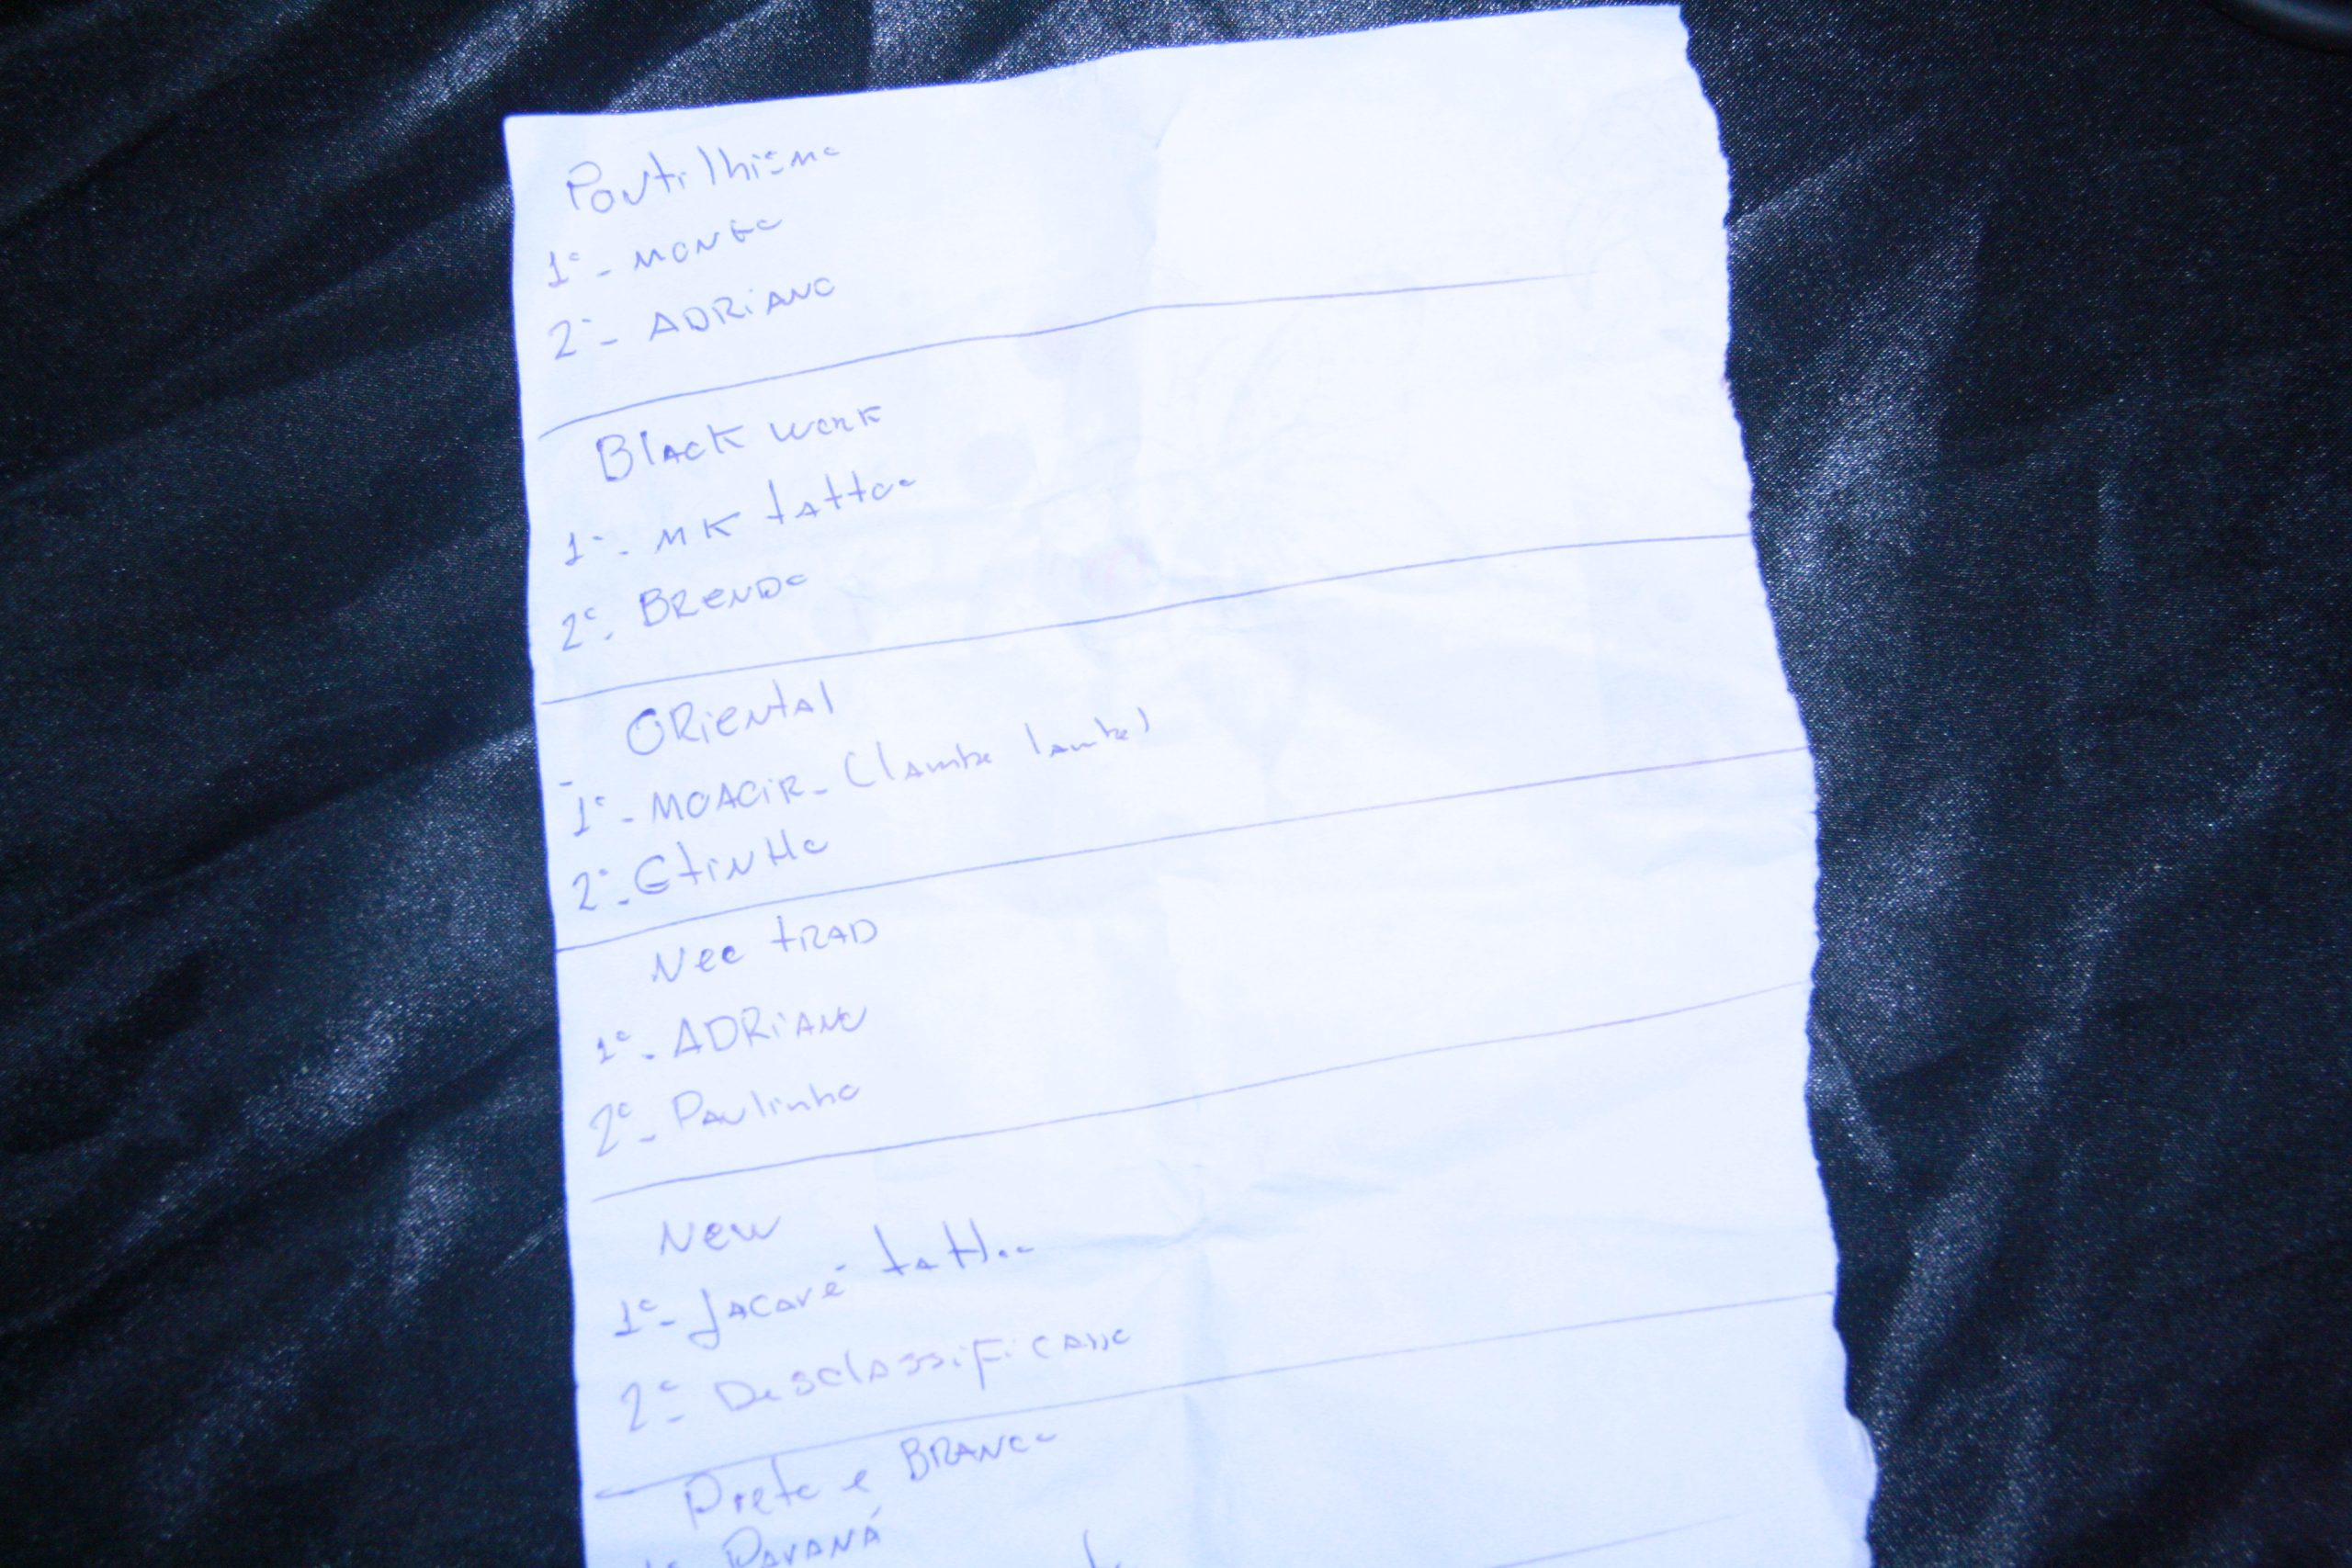 Pontilhismo
1º - MONGO
2º - ADRIANO
Black work
1º - MK tattoo
2º - BRENDO
ORiental
1º - MOACIR - (lambe lambe)
2º - GtinHo
Neo tRAD
1º - ADRiANO
2º - Paulinho
New
1º - Jacaré tattoo
2º - Desclassificado
Preto e BRANCO